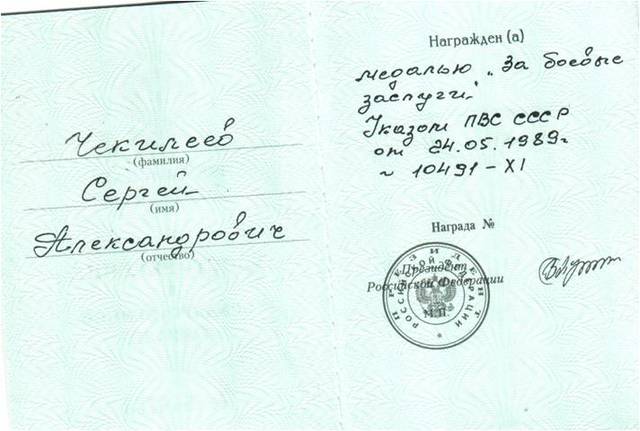 Чекилеев
(фамилия)
Сергей
(имя)
Александрович
(отчество)
Награжден (а)
медалью „За боевые
заслуги“
Указом ПВС СССР
от 24.05.1989г
N 10491-XI
Награда №
Президент
Российской Федерации
М.П.
ПРЕЗИДЕНТ
РОССИЙСКОЙ ФЕДЕРАЦИИ